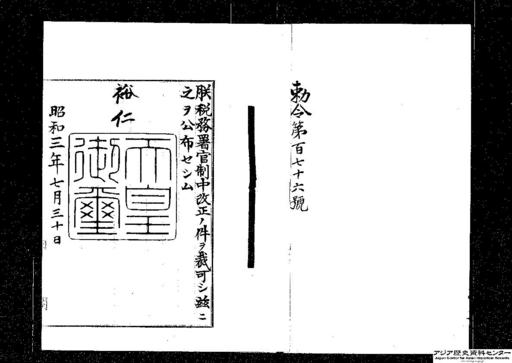 勅令第百七十六號
朕税務署官制中改正ノ件ヲ裁可シ茲ニ
之ヲ公布セシム
裕仁
天皇御璽
昭和三年七月三十日
アジア歴史資料センター
Japan Center for Asian Historical Records